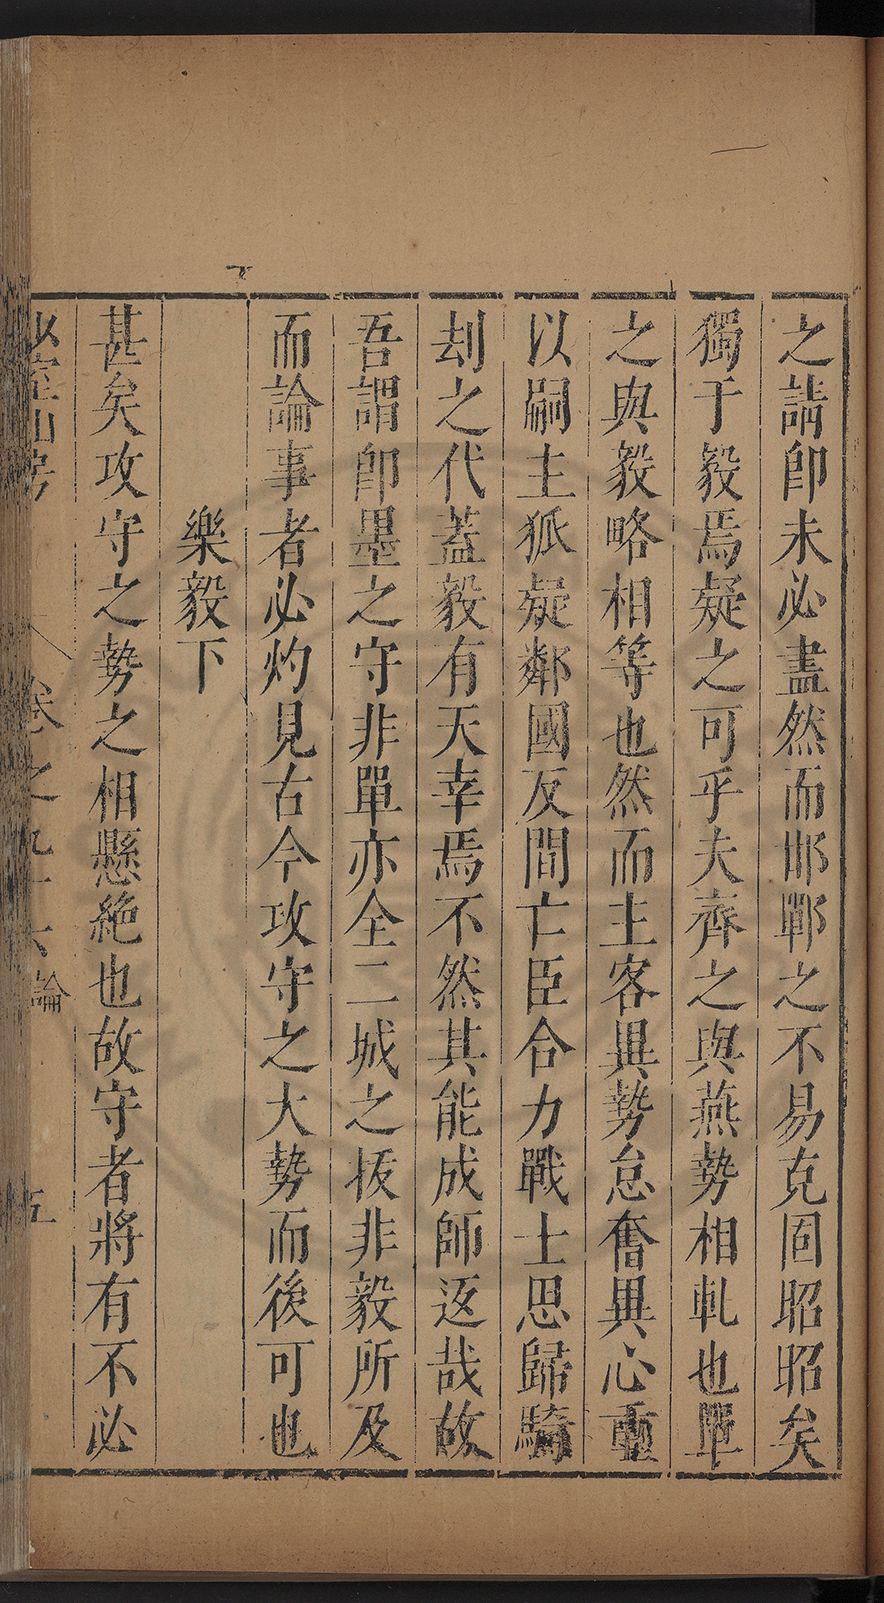 之請卽未必盡然而邯鄲之不易克固昭昭矣
獨于毅焉疑之可乎夫齊之與燕勢相軋也單
之與毅略相等也然而主客異勢怠奮異心重
以嗣主狐疑鄰國反間亡臣合力戰士思歸騎
刦之代蓋毅有天幸焉不然其能成師返哉故
吾謂卽墨之守非單亦全二城之拔非毅所及
而論事者必灼見古今攻守之大勢而後可也
樂毅下
甚矣攻守之勢之相懸絶也故守者將有不必
山房 卷之九十六 論 五